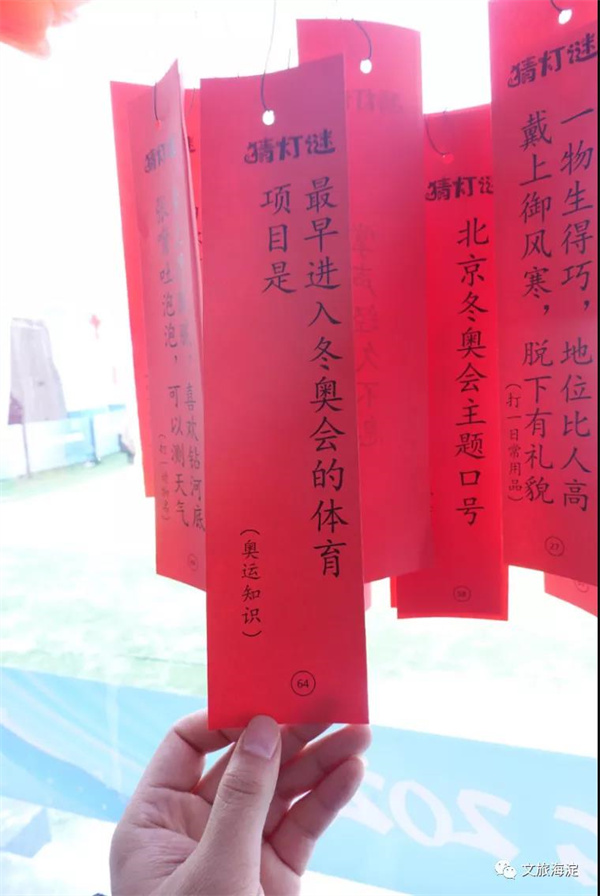 猜灯谜
最早进入冬奥会的体育
项目是
(奥运知识)
64
猜灯谜
一物生得巧，地位比人高
戴上御风寒，脱下有礼貌
(打一日常用品)
27
猜灯谜
北京冬奥会主题口号
猜灯谜
喜欢钻河底
吐泡泡，可以测天气
文旅海淀